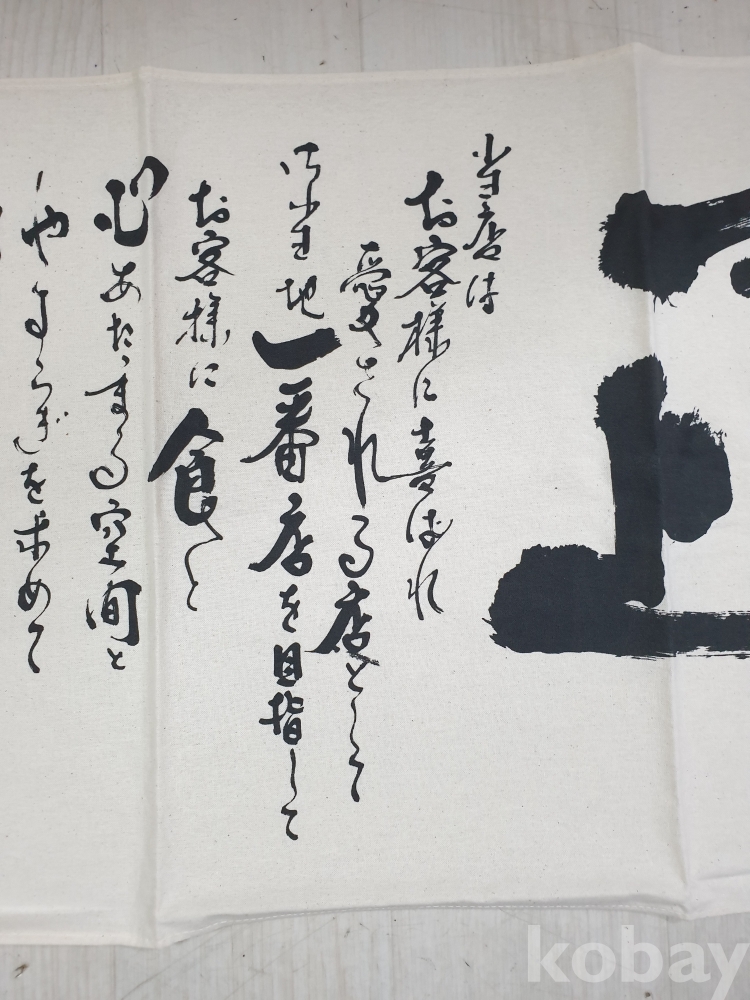 当店は
お客様に喜ばれ
愛される店として
御当地一番店を目指して
お客様に食と
心あたゝまる空間と
やすらぎを求めて
kobay